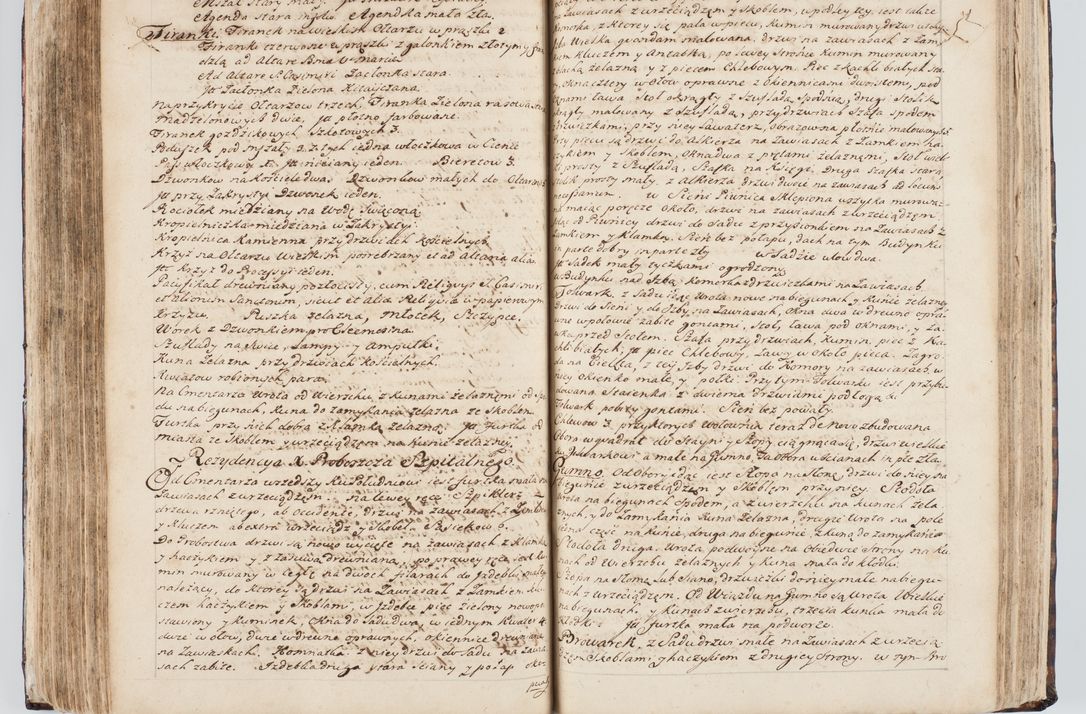 Agenda stara mszo Agendka mała zła.
Firanki. Firanek na wielkim Ołtarzu w prążki 2
Firanki czerwone w prążki z galonkiem złotym y
dzlą ad Altare Bmæ V. Mariæ
Ad Altare S. Casimiri Zasłonka stara.
Ja Zasłonka Zielona Kitayczana.
Na przykrycie Ołtarzow trzech, Firanka Zielona
dwie, ja płotno farbowane.
Firanek gozdzikowych Szkotowych 3.
Poduszek pod mszały z żółtych iedna włoczkowa w Cienie
Pas włoczkowy 1. Ja niciany ieden. Bieretow 3.
Dzwonkow na Kościele dwa. Dzwonkow małych do Ołtarzow
Ja przy Zakrystyi Dzwonek ieden.
Kociołek miedziany na Wodę Swięconą.
Kropielniczka miedziana w Zakrystyi.
Kropielnica Kamienna przy drzwiach Kościelnych.
Krzyż na Ołtarzu Wielkim posrebrzany et ad Altaria alia
Ja Krzyż do Processyi ieden.
Pacyfikał drewniany pozłocisty, cum Reliquiis S. Casimiri
et aliorum Sanctorum, sicut et alia Religvia w papierowym
Krzyżu. Puszka żelazna, Młotek, Szczypce,
Worek z Dzwonkiem pro Eleemosina.
Szuflady na Swice, Lampy y Ampułki.
Kuna Zelazna przy drzwiach Kościelnych.
Kwiatow robionych para.
Na Cmentarzu Wrota od Wierzchu z Kunami żelaznemi od spo
du na biegunach, Kuna do zamykania żelazna ze Skoblem
Furtka przy nich dobra z Klamką żelazną. Ja Furtka od
miasta ze Skoblem y wrzeciądzem na Kunie żelazney.
Rezydencya X. Proboszcza Szpitalnego.
Od Cmentarza wszedszy Ku Plebanowi iest furtka mała na
Zawiasach z wrzeciądzem, na lewey ręce Spiklerz z
drzewa rzniętego, ab occidente, drzwi na zawiasach z Zamkiem
y Kluczem ab extra wrzeciądz y Skobel, Sąsiekow 6.
Do Probostwa drzwi są nowo wycięte na zawiasach z Klamką
y haczykiem y z zasuwą drewnianą, po prawey ręce iest Ko
min murowany w cegłę na dwoch filarach do Izdebki małey
należący, do ktorey są drzwi na Zawiasach z Zamkiem Klu
czem haczykiem y Skoblami, w Izdebce piec zielony nowo po
stawiony y Kuminek, Okna do Sadu dwa, w iednym Kwater 4
dwie w ołow, dwie w drewno oprawnych, okiennice drewniane
na Zawiaskach. Komnatka z niey drzwi do Sadu na Zawia
sach zabite. Izdebka druga stara ściany y pułap okrą
Zawiasach z wrzeciądzem y Skoblem, wpodle tey iest także
komorka z ktorey się pala w piecu, Kumin murowany drzwi u tey
Izba Wielka gwasdami malowana, drzwi na zawiasach z Zam
kiem Kluczem y Antabką, po lewey Stronie Kumin murowany
z blachą żelazną y z piecem Chlebowym. Piec z kachli białych sta
ry, Okna cztery w ołow oprawne z okiennicami dwoistemi, pod
Oknami ława Stoł okrągły z Szufladą spodnią, drugi Stolik
okrągły malowany z Szufladą, przy drzwiach Szafa spodem
drzwiczkami, przy niey Lawaterz, obrazowna płotnie malowanych
Przy piecu są drzwi do Alkierza na Zawiasach z Zamkiem ha
czykiem y Skoblem, Okna dwa z prętami żelaznemi, Stoł wiel
ki prosty z Szufladą, Szafka na Księgi, druga Szafka stara
Stolik prosty mały. z Alkierza drzwi dwoie na zawiasach ad locum
necessarium. w Sieni Piwnica Sklepiona wszytka murowa
na maiąc poręcze około, drzwi na zawiasach z wrzeciądzem.
Idąc od Piwnicy drzwi do Sadu z przysionkiem na Zawiasach z
Zamkiem y Klamką. Sień bez pułapu, dach na tym Budynku
in parte dobry in parte zły. W Sadzie ulow dwa.
Ja Sadek mały tyczkami ogrodzony.
w Budynku nad Izbą Komorka z drzwiczkami na Zawiasach.
Folwark, z Sadu idąc Wrota nowe na biegunach y Kunie żelazney
drzwi do Sieni y do Izby na Zawiasach, Okna dwa w drewno opra
wne w połowie zabite gontami, Stoł, Ława pod oknami, y Ła
wka przed Stołem. Szafa przy drzwiach, Kumin, piec z Ka
chli białych, ja piec Chlebowy, Ławy w około pieca. Zagro
da na Cielęta, z tey Izby drzwi do Komory na zawiasach, w
niey okienko małe, y połki. Przy tym Folwarku iest przybu
dowana Staienka z dwiema drzwiami podłogą &c.
Folwark pobity gontami. Sień bez powały.
Chlewow 3 przy ktorych Wołownia teraz de novo zbudowana
Obora w quadrat do Stayni y Szopy ciągnąca się, drzwi wielkie
ku Plebankowi a małe na Gumno, ta Obora w ścianach in pte zła.
Gumno. Od Obory idąc iest Szopa na Słomę, drzwi do niey na
Biegunie z wrzeciądzem y Skoblem przy niey. Stodoła
Wrota na biegunach spodem, a z wierzchu na Kunach żela
znych, y do Zamykania Kuna żelazna, drugie Wrota na pole
część na Kunie, druga na biegunie, z Kuną do zamykania
Stodoła druga. Wrota podwoyne na obiedwie strony na Ku
nach od Wierzchu żelaznych y Kuna mała do Kłodki.
Szopa na Słomę lub Siano, drzwiczki do niey małe na biegu
nach z wrzeciądzem. Od Wiazdu na Gumno są Wrota Wielkie
na biegunach, y Kunach z wierzchu, trzecia Kunka mała do
Kłodki. Ja Furtka mała na podworze.
Browarek, z Sadu drzwi małe na Zawiasach z wrzecią
dzem Skoblami y haczykiem z drugiey strony. w tym Bro